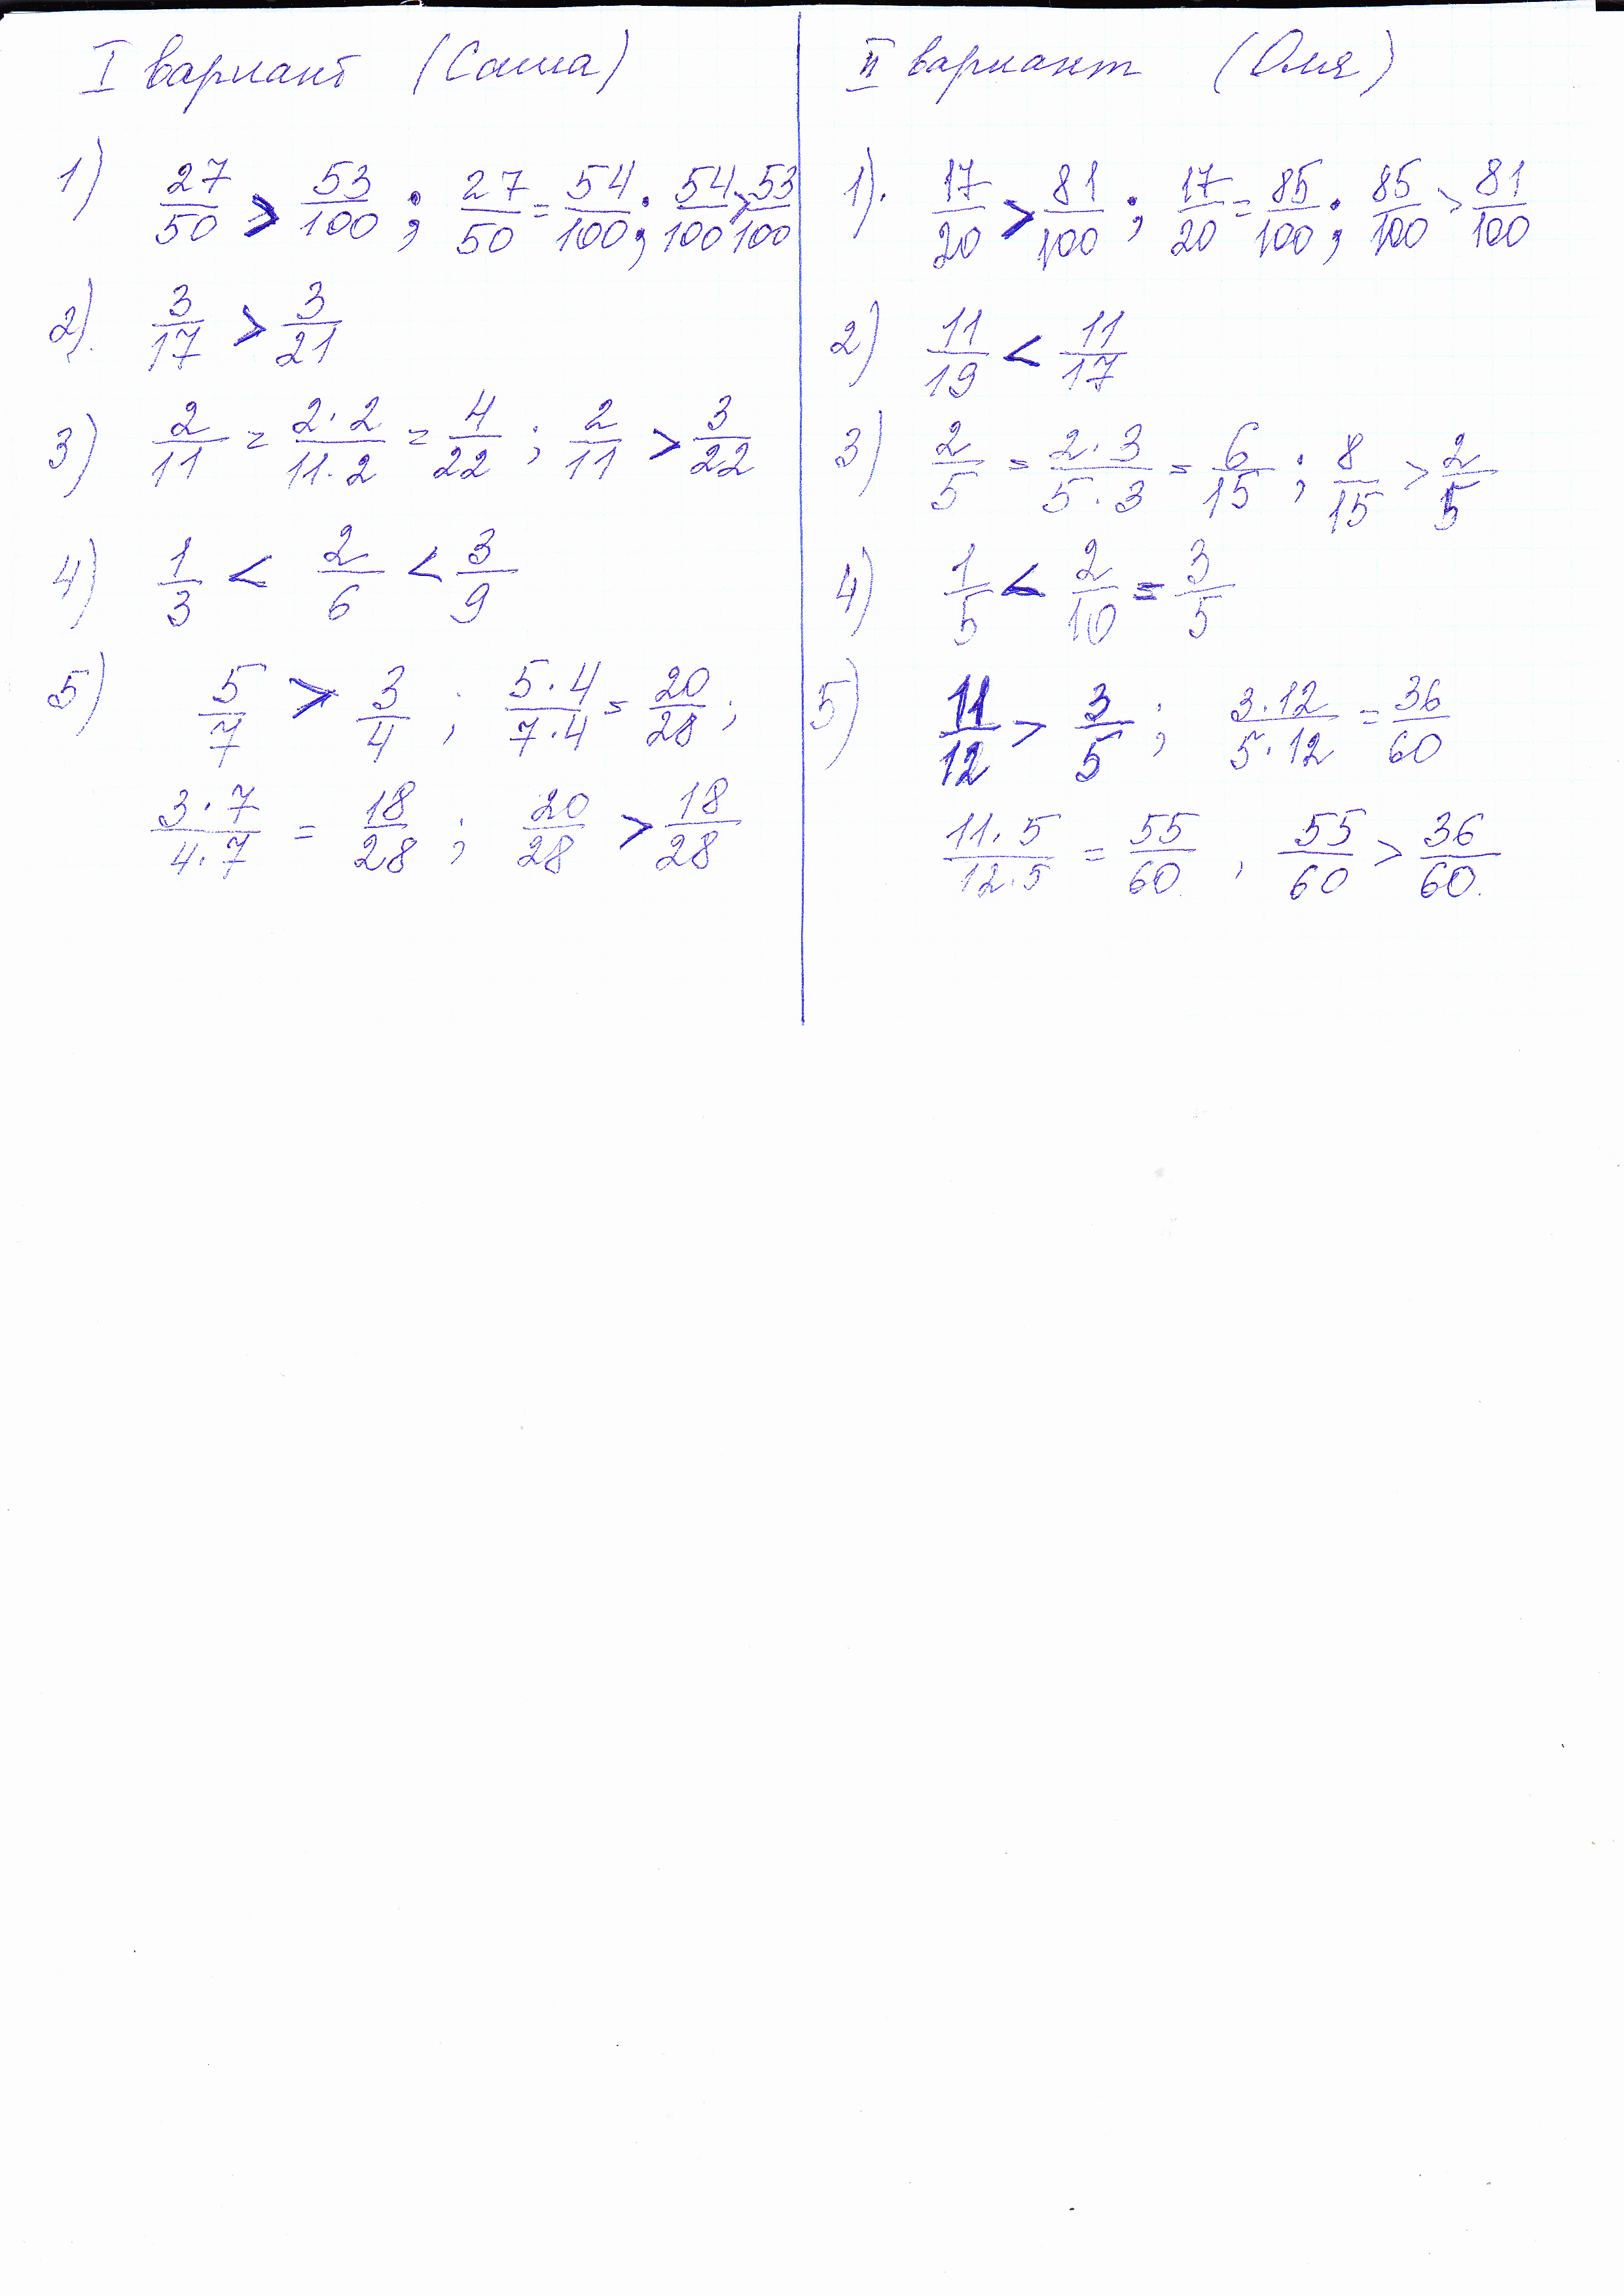 I вариант (Саша)
1) 27/50 > 53/100 ; 27/50 = 54/100 ; 54/100 > 53/100
2). 3/17 > 3/21
3) 2/11 = 2·2/11·2 = 4/22 ; 2/11 > 3/22
4) 1/3 < 2/6 < 3/9
5) 5/7 > 3/4 ; 5·4/7·4 = 20/28 ;
3·7/4·7 = 18/28 ; 20/28 > 18/28
II вариант (Оля)
1). 17/20 > 81/100 ; 17/20 = 85/100 ; 85/100 > 81/100
2) 11/19 < 11/17
3) 2/5 = 2·3/5·3 = 6/15 ; 8/15 > 2/5
4) 1/5 < 2/10 = 3/5
5) 11/12 > 3/5 ; 3·12/5·12 = 36/60
11·5/12·5 = 55/60 , 55/60 > 36/60.